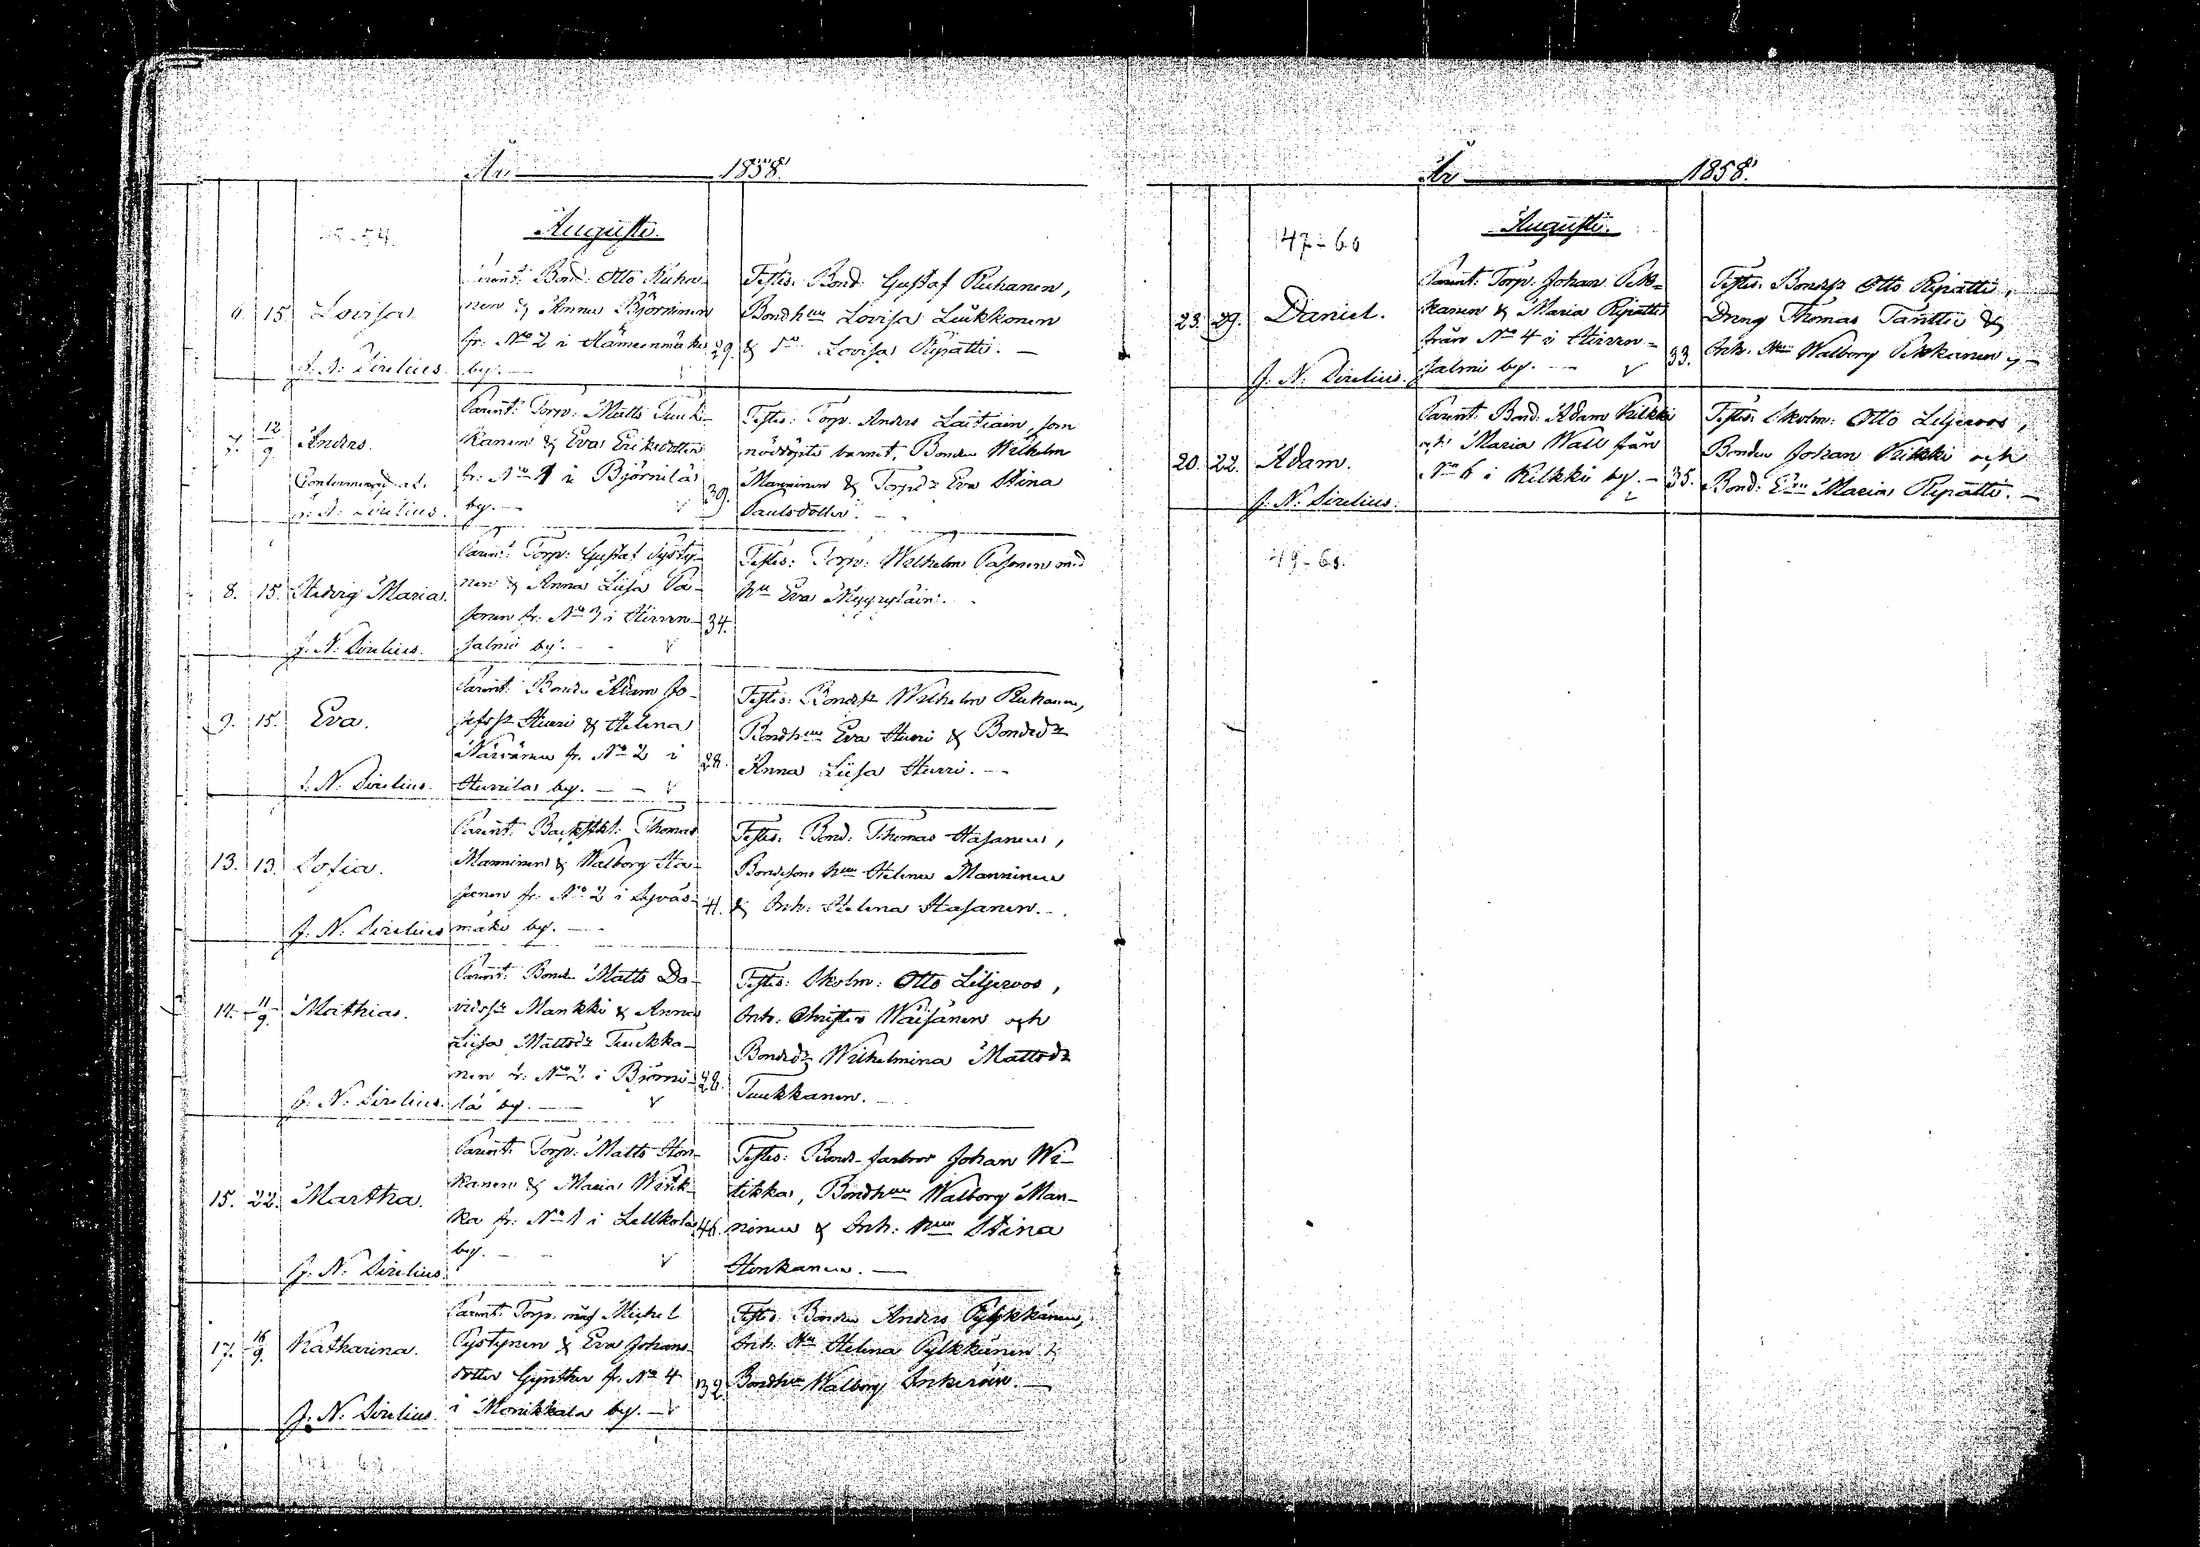 År 1858.
Augusti.
6. 15. Lovisa.
J. N. Sirelius.
Parent: Bond: Otto Ruha-
nen & Anna Björninen
fr: No 2 i Hämeenmäki
by. —
29.
Testes: Bond: Gustaf Ruhanen,
Bondhuu Lovisa Liukkonen
& Lovisa Ripatti. —
7. 12/9 Anders.
J. N. Sirelius.
Parent: Torp: Matts Tuuk-
kanen & Eva Eriksdotter
fr: No 1 i Björnilä
by. —
39.
Testes: Torp: Anders Laitiain, som
nöddöpte barnet, Bonden Wilhelm
Manninen & Torpdr Eva Stina
Paulsdotter.
8. 15. Hedvig Maria.
J. N. Sirelius.
Parent: Torp: Gustaf Pysty-
nen & Anna Liisa Pa-
sonen fr: No 3 i Hirven-
salmi by. —
34.
Testes: Torp: Wilhelm Pasonen med
hu Eva Myyryläin.
9. 15. Eva.
J. N. Sirelius.
Parent: Bonden Adam Jo-
sefss Hurri & Helena
Närvänen fr. No 2 i
Hurrila by. — —
28.
Testes: Bondes Wilhelm Ruhanen,
Bondhuu Eva Hurri & Bondedr
Anna Liisa Hurri. —
13. 13. Sofia.
J. N. Sirelius
Parent: Thomas
Manninen & Walborg Ha-
sanen fr. No 2 i Syväs-
mäki by. —
41.
Testes: Bond: Thomas Hasanen,
Bondesons huu Helena Manninen
& Inh: Helena Hasanen. —
14. 11/9 Mathias.
J. N. Sirelius.
Parent: Bonden Matts Da-
vidss Mankki & Anna
Liisa Mattsdr Tuukka-
nen fr: No 2 i Björni-
lä by. —
28.
Testes: Skolm: Otto Liljeroos,
Inh: Christer Wäisänen och
Bondedr Wilhelmina Mattsdr
Tuukkanen.
15. 22. Martha.
J. N. Sirelius.
Parent: Torp: Matts Hon-
kanen & Maria Witik-
ka fr: No 1 i Lellkola
by. —
46.
Testes: Bond-farbror Johan Wi-
tikka, Bondhuu Walborg Man-
ninen & Inh: huu Stina
Honkanen. —
17. 16/9. Katharina.
J. N. Sirelius.
Parent: Torp. måg Michel
Pystynen & Eva Johans-
dotter Gynther fr. No 4
i Monikkala by. —
32.
Testes: Bonden Anders Pylkkänen,
Inh: Hu Helena Pylkkänen &
Bondhu Walborg Inkeröin. —
År 1858.
47-60
Augusti.
23. 29. Daniel.
J. N. Sirelius.
Parent: Torp. Johan Pek-
kanen & Maria Ripatti
från No 4 i Hirven-
salmi by. —
33.
Testes: Bondes Otto Ripatti,
Dreng Thomas Tanttu &
Inh. Hu Walborg Pekkanen. —
20. 22. Adam.
J. N. Sirelius.
Parent: Bond. Adam Kilkki
och Maria Wall från
No 6 i Kilkki by. —
35.
Testes: Skolm: Otto Liljeroos,
Bonden Johan Kilkki och
Bond: Maria Ripatti. —
49-60.